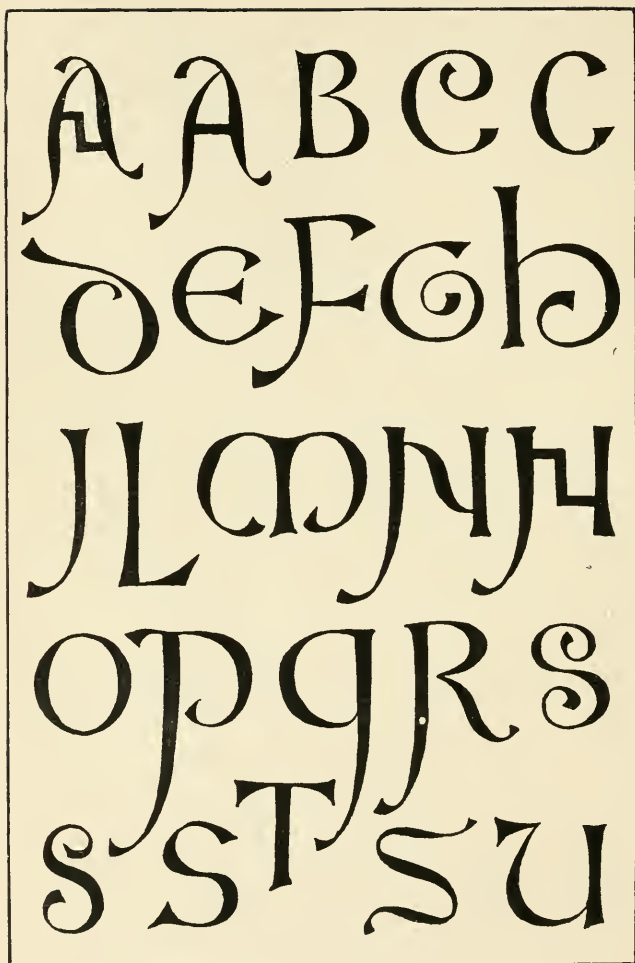 A A B C C
d E F G h
J L M N N
O P q R S
S S T S U